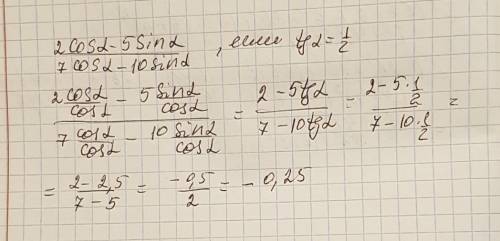 (2cosα - 5sinα)/(7cosα - 10sinα) , если tgα = 1/2
(2 cosα/cosα - 5 sinα/cosα)/(7 cosα/cosα - 10 sinα/cosα) = (2 - 5tgα)/(7 - 10tgα) = (2 - 5·1/2)/(7 - 10·1/2) =
= (2 - 2,5)/(7 - 5) = (-0,5)/2 = - 0,25